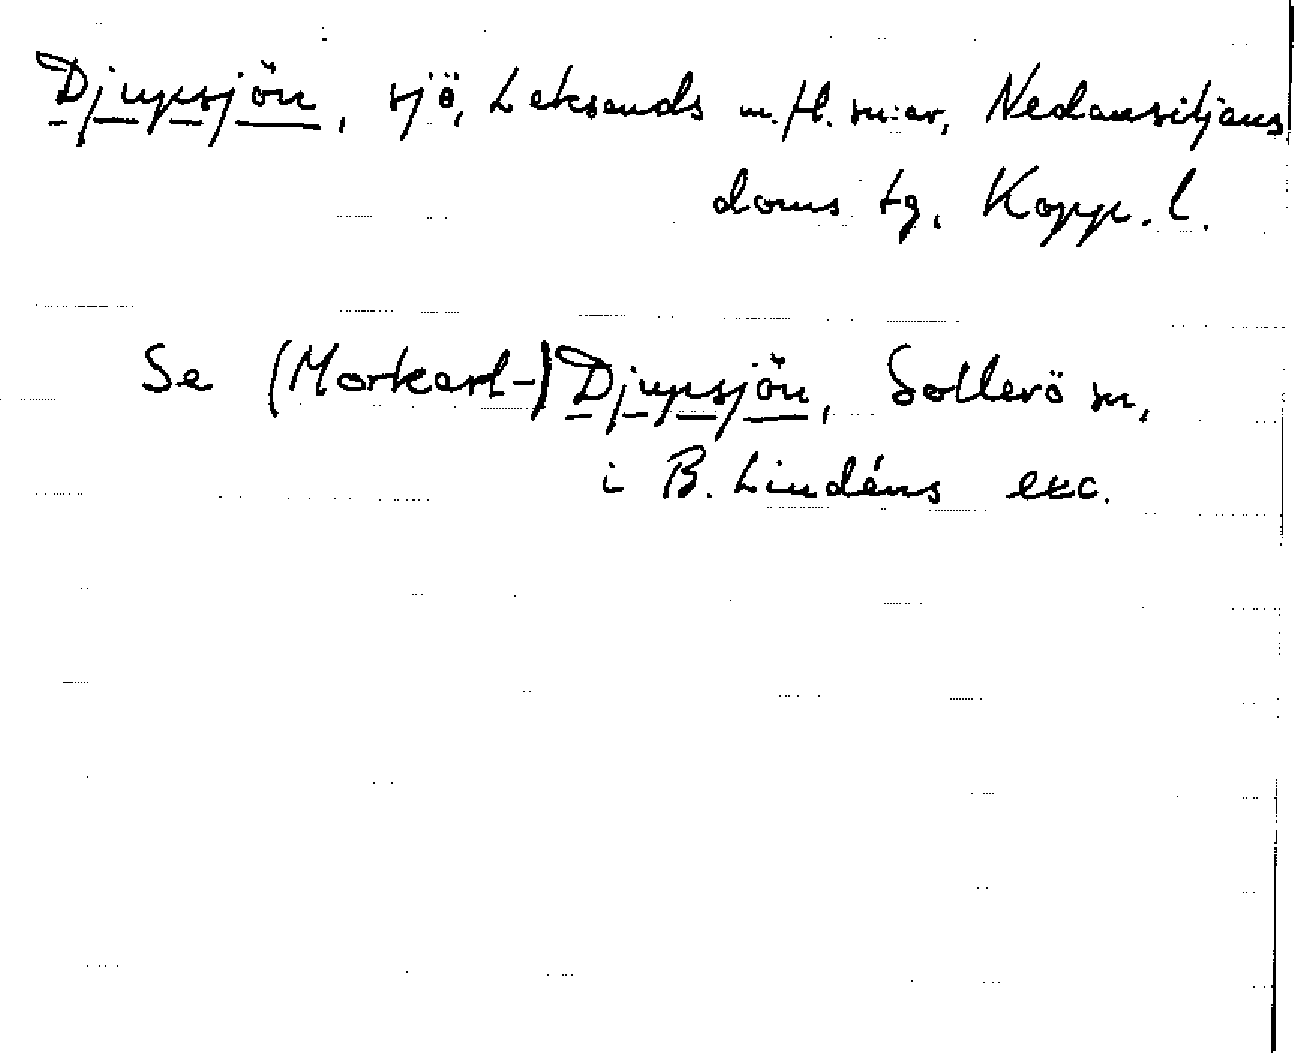 Djupsjön, sjö, Leksands m.fl. sn:ar, Nedansiljans
doms tg, Kopp. l.
Se (Morkarl-)Djupsjön, Sollerö sn,
i B. Lindéns exc.